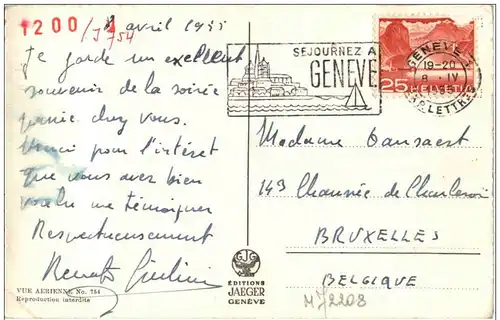 1200
/J754
8 avril 1955
Je garde un excellent
souvenir de la soirée
passée chez vous.
Merci pour l'intérêt
que vous avez bien
voulu me témoigner
Respectueusement
Renato
VUE AERIENNE No. 754
Reproduction interdite
ÉDITIONS
JAEGER
GENÈVE
SEJOURNEZ A
GENEVE
25 HELVETIA
GENEVE 1
19-20
8. IV
LETTRES
Madame Dansaert
149 Chaussée de Charleroi
BRUXELLES
BELGIQUE
M J2208